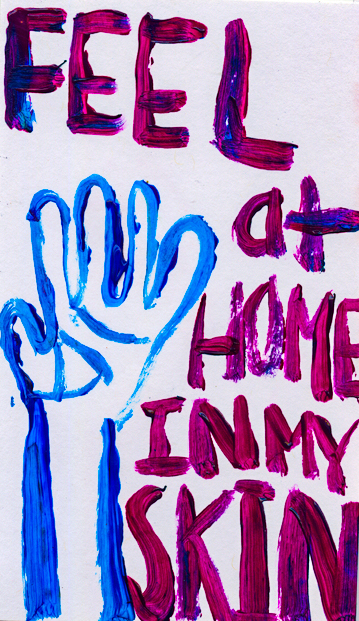 FEEL
at
HOME
IN MY
SKIN